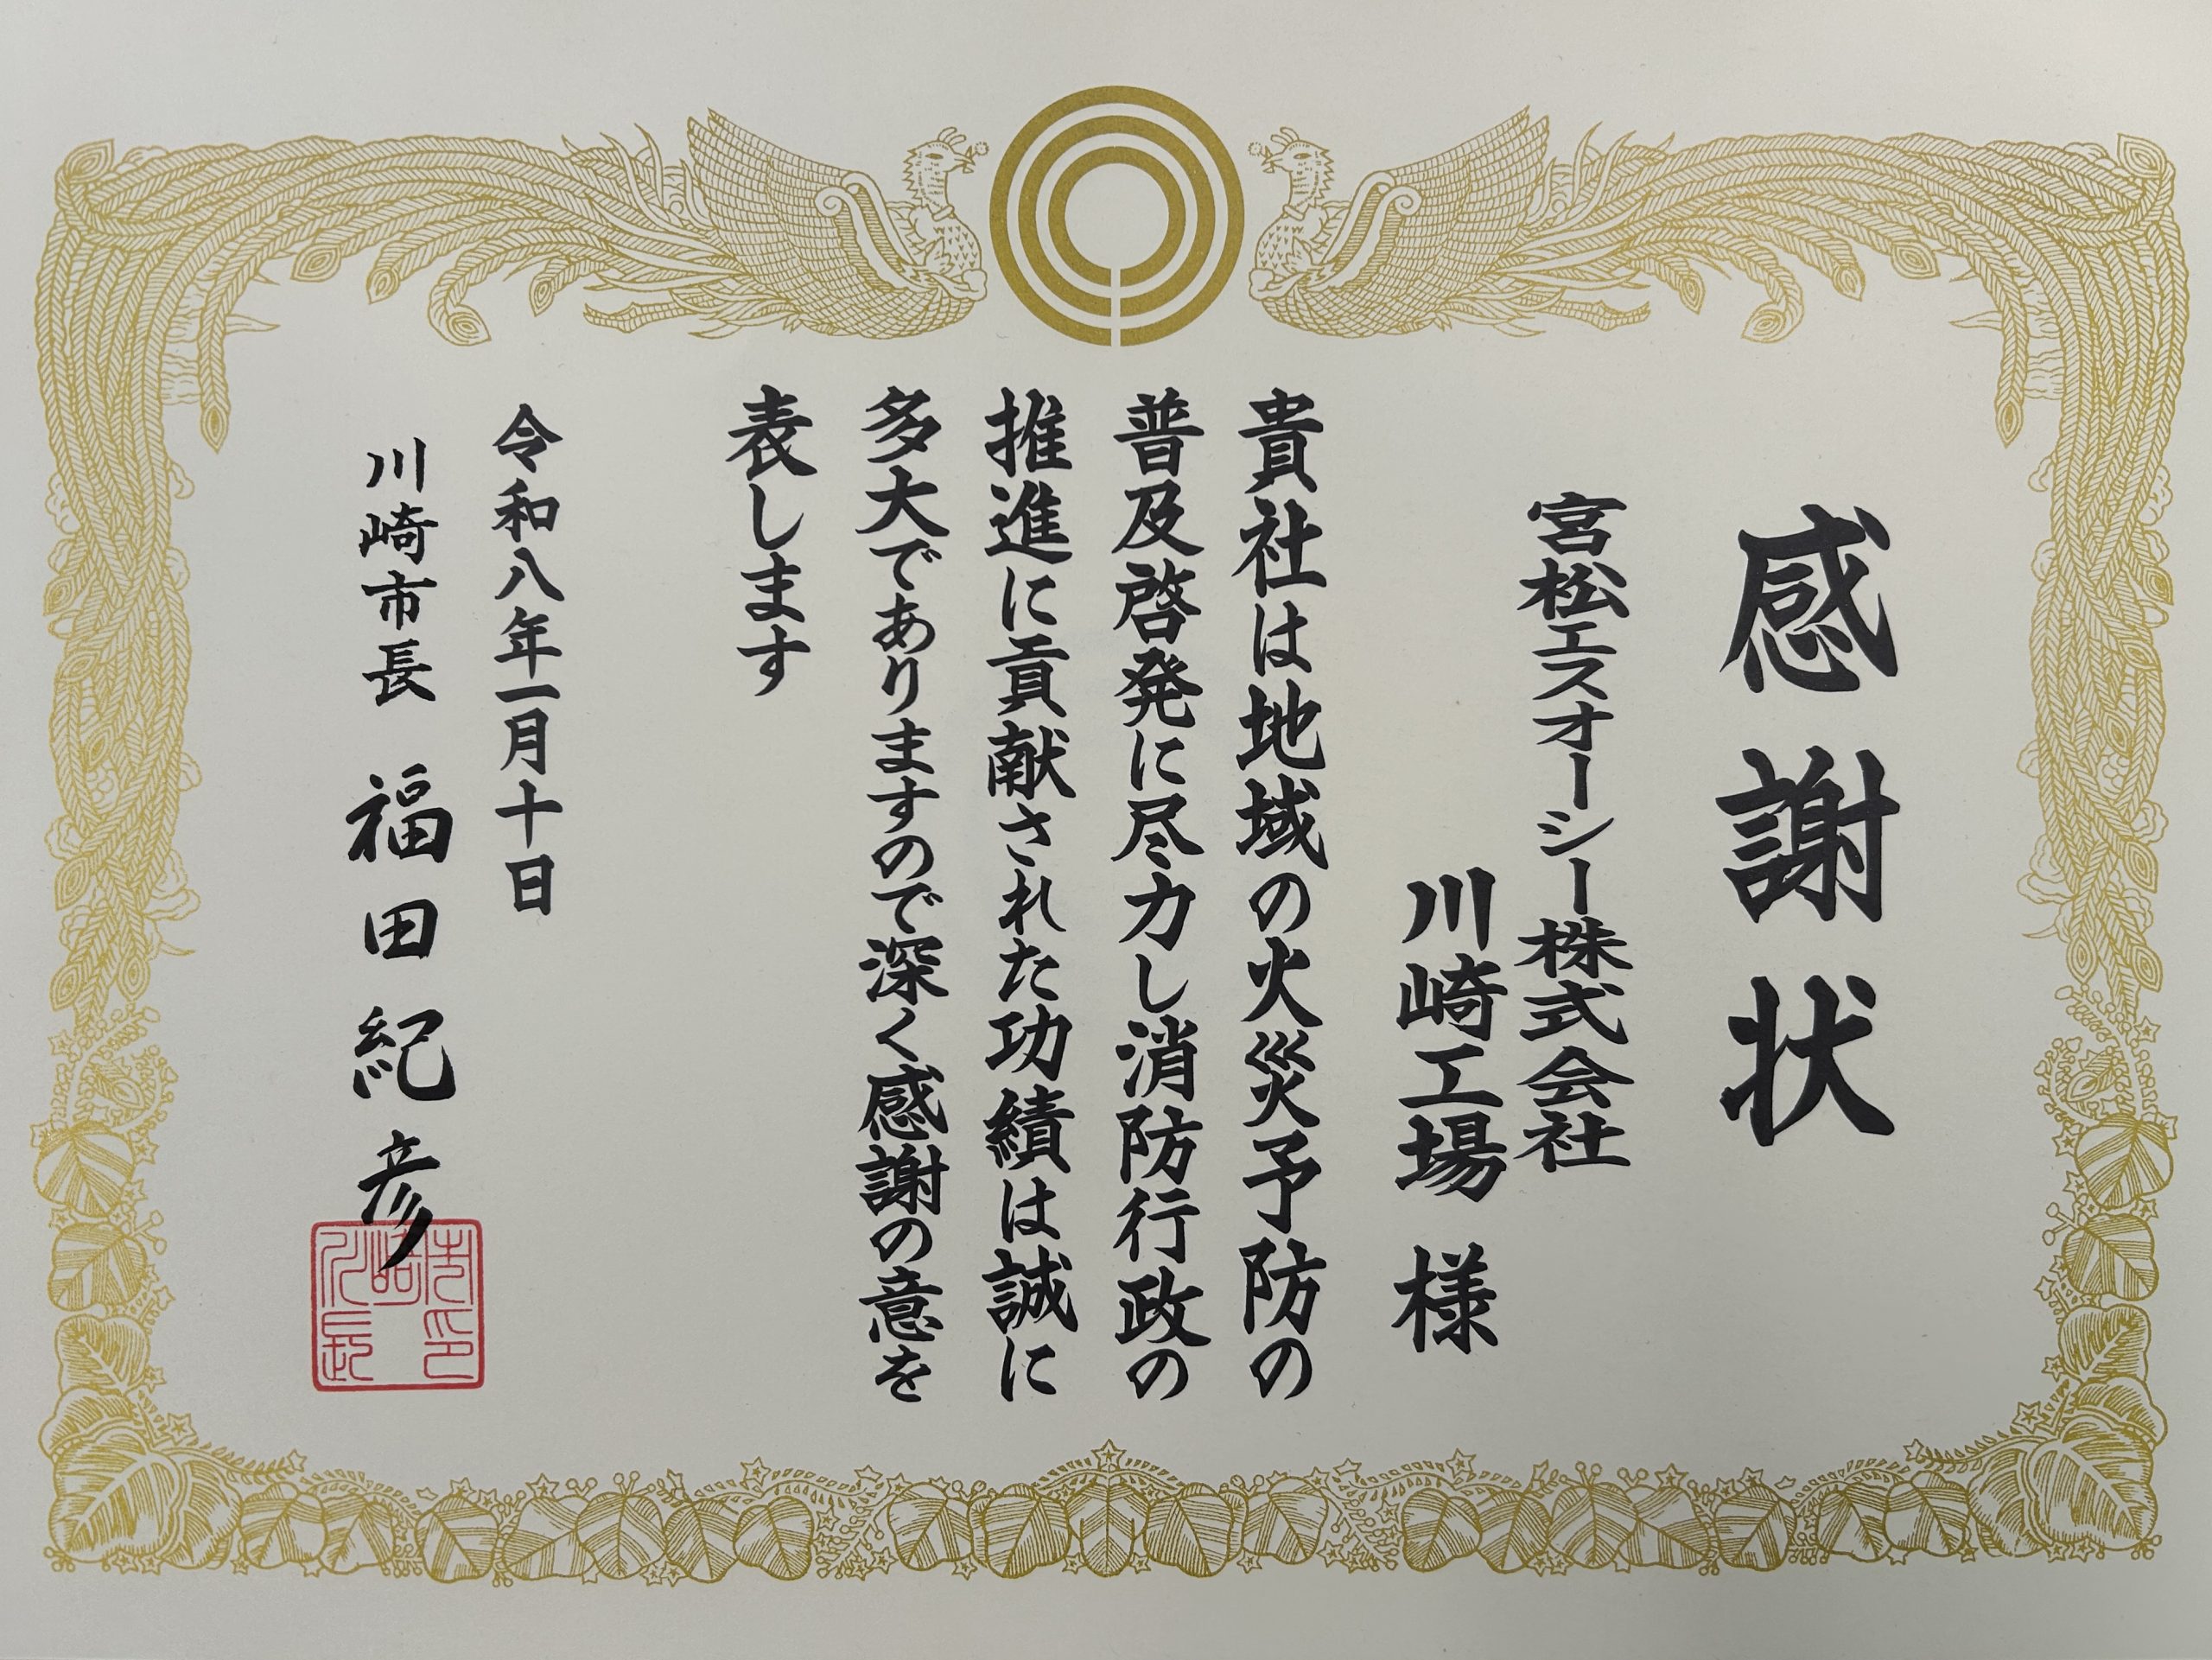 感謝状
宮松エスオーシー株式会社
川崎工場 様
貴社は地域の火災予防の
普及啓発に尽力し消防行政の
推進に貢献された功績は誠に
多大でありますので深く感謝の意を
表します
令和八年一月十日
川崎市長 福田紀彦